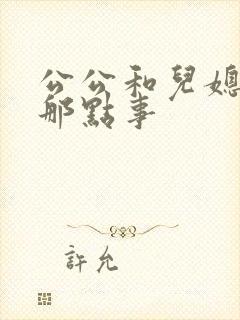 公公和兒媳
那點事
許允